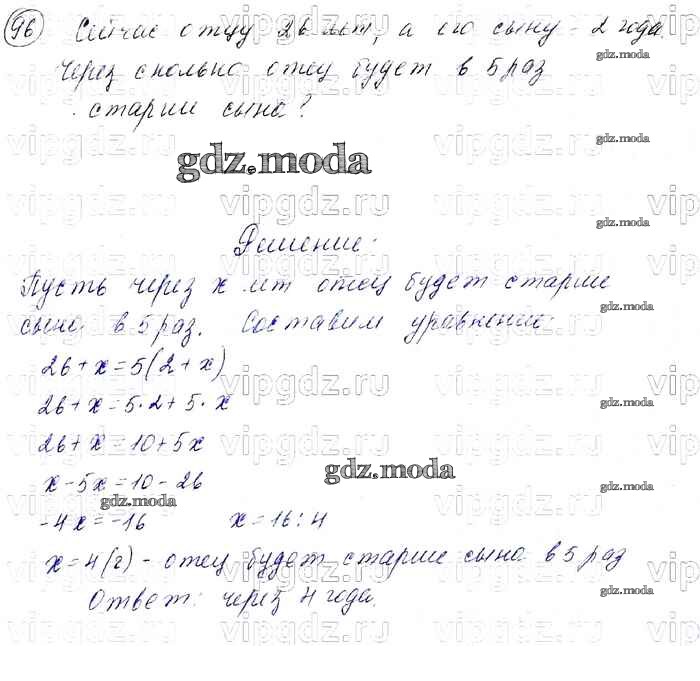 96 Сейчас отцу 26 лет, а его сыну - 2 года.
Через сколько отец будет в 5 раз
старше сына?
gdz.moda
Решение:
Пусть через x лет отец будет старше
сына в 5 раз. Составим уравнение:
26+x=5(2+x)
26+x=5·2+5·x
26+x=10+5x
x-5x=10-26
gdz.moda
-4x=-16 x=16:4
x=4(г) - отец будет старше сына в 5 раз
Ответ: через 4 года.
vipgdz.ru